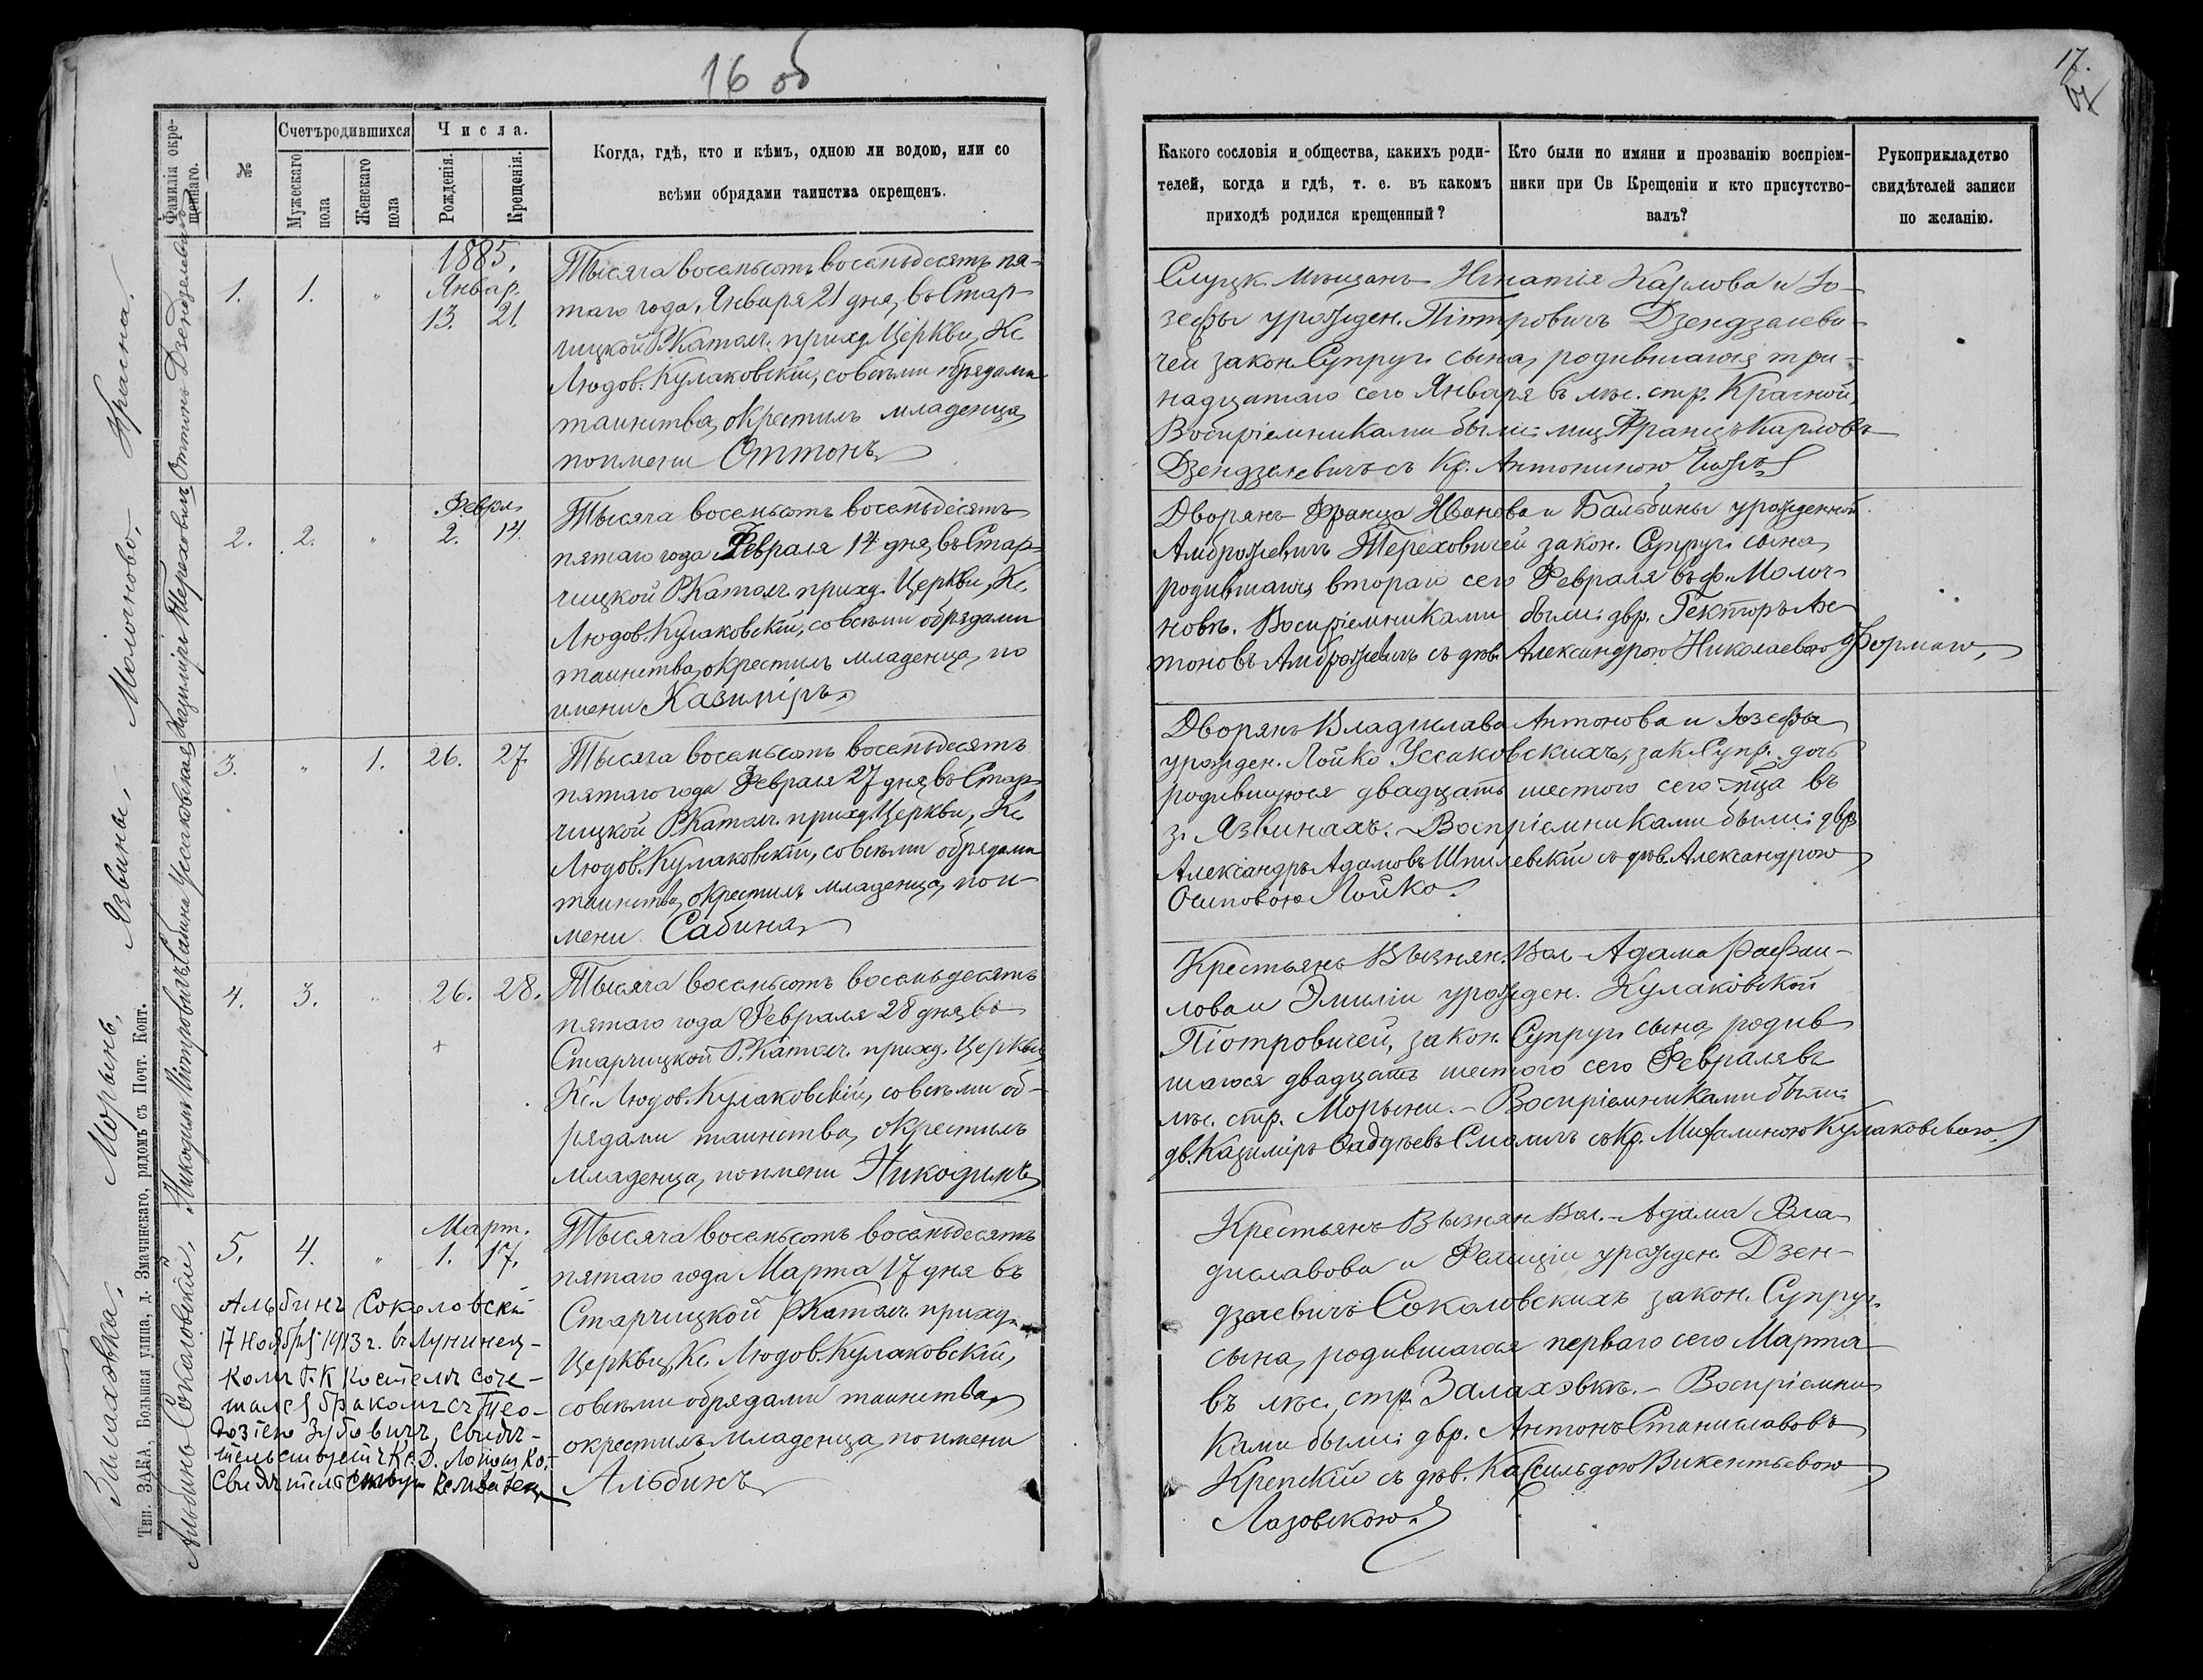 16 об
17.
Фамилія окре-
щеннаго.
№
Счетъ родившихся
Мужескаго
пола
Женскаго
пола
Числа.
Рожденія.
Крещенія.
Когда, гдѣ, кто и кѣмъ, одною ли водою, или со
всѣми обрядами таинства окрещенъ.
Красна.
Молочново.
Язвины.
Морынь.
Залахэвка.
Тип. ЗАКА, Большая улица, д. Змачинскаго, рядомъ съ Почт. Конт.
Оттонъ Дзендзелевичъ
1.
1.
"
1885.
Январ.
13. 21.
Тысяча восемьсотъ восемьдесятъ пя-
таго года, Января 21 дня, въ Стар-
чицкой Р.Катол. приход. Церкви, Кс.
Людов. Кулаковскій, со всѣми обрядами
таинства, окрестилъ младенца,
по имени Оттонъ
Казиміръ Тереховичъ
2.
2.
"
Феврл.
2. 14.
Тысяча восемьсотъ восемьдесятъ
пятаго года Февраля 14 дня, въ Стар-
чицкой Р.Катол. приход. Церкви, Кс.
Людов. Кулаковскій, со всѣми обрядами
таинства, окрестилъ младенца, по
имени Казиміръ.
Сабина Уссаковская
3.
"
1.
26. 27.
Тысяча восемьсотъ восемьдесятъ
пятаго года Февраля 27 дня, въ Стар-
чицкой Р.Катол. приход. Церкви, Кс.
Людов. Кулаковскій, со всѣми обрядами
таинства, окрестилъ младенца, по и-
мени Сабина
Никодимъ Піотровичъ
4.
3.
"
26. 28.
Тысяча восемьсотъ восемьдесятъ
пятаго года Февраля 28 дня, въ
Старчицкой Р.Катол. приход. Церкви
Кс. Людов. Кулаковскій, со всѣми об-
рядами таинства, окрестилъ
младенца, по имени Никодимъ
Альбинъ Соколовскій.
5.
4.
"
Март.
1. 17.
Тысяча восемьсотъ восемьдесятъ
пятаго года Марта 17 дня въ
Старчицкой Р.Катол. приход.
Церкви, Кс. Людов. Кулаковскій,
со всѣми обрядами таинства,
окрестилъ младенца, по имени
Альбинъ
Альбинъ Соколовскій
17 Ноября 1913 г. въ Лунинец-
комъ Р.К. Костелѣ соче-
тался бракомъ съ Тео-
дозіею Зубовичъ, свидѣ-
тельствуетъ Кс. Д.
Какого сословія и общества, какихъ роди-
телей, когда и гдѣ, т. е. въ какомъ
приходѣ родился крещенный?
Кто были по имяни и прозванію воспріем-
ники при Св Крещеніи и кто присутство-
валъ?
Рукоприкладство
свидѣтелей записи
по желанію.
Слуцк. мѣщанъ Игнатія Карлова и Іо-
зефы урожден. Піотровичъ Дзендзелеви-
чей закон. Супруг. сына, родившагося три-
надцатаго сего Января въ лѣс. стр. Красной.
Воспріемниками были: мщ. Францъ Карловъ
Дзендзелевичъ съ Кр. Антониною
Дворянъ Франца Иванова и Бальбины урожденной
Амброжевичъ Тереховичей закон. Супруг. сына,
родившагося втораго сего Февраля въ ф. Молоч-
новѣ. Воспріемниками были: двр. Гекторъ Ан-
тоновъ Амброжевичъ съ дѣв. Александрою Николаевою Формою,
Дворянъ Владислава Антонова и Іозефы
урожден. Лойко Уссаковскихъ, зак. Супр. дочь
родившуюся двадцать шестого сего мца въ
з. Язвинахъ. - Воспріемниками были: двр.
Александръ Адамовъ Шпилевскій съ дѣв. Александрою
Осиповою Лойко.
Крестьянъ Вызнян. Вол. - Адама Рафаи-
лова и Эмиліи урожден. Кулаковской
Піотровичей, закон. Супруг. сына, родив-
шагося двадцать шестого сего Февраля въ
лѣс. стр. Морыни. - Воспріемниками были:
дв. Казиміръ Фаддѣевъ Смоличъ съ Кр. Михалиною Кулаковскою.
Крестьянъ Вызнян. Вол. - Адама Вла-
диславова и Фелиціи урожден. Дзен-
дзелевичъ Соколовскихъ закон. Супруг.
сына, родившагося перваго сего Марта
въ лѣс. стр. Залахэвкѣ. - Воспріемни-
ками были: двр. Антонъ Станиславовъ
Крепскій съ дѣв. Кассильдою Викентьевою
Лазовскою.